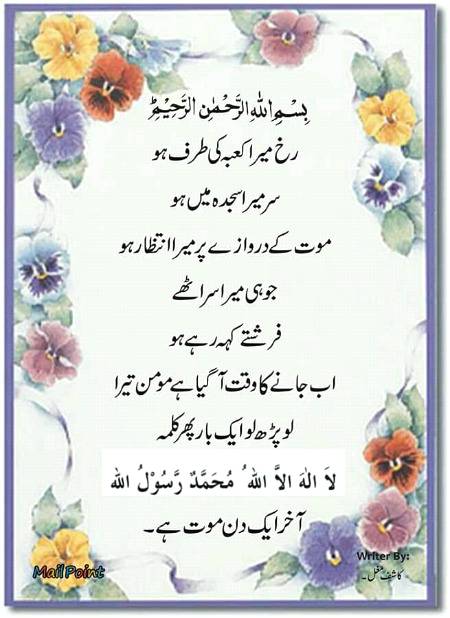 بِسْمِ اللهِ الرَّحْمٰنِ الرَّحِيْمِ
رخ میرا کعبہ کی طرف ہو
سر میرا سجدہ میں ہو
موت کے دروازے پر میرا انتظار ہو
جوہی میرا سر اٹھے
فرشتے کہہ رہے ہو
اب جانے کا وقت آ گیا ہے مومن تیرا
لو پڑھ لو ایک بار پھر کلمہ
لاَ الٰهَ الاَّ اللهُ مُحَمَّدٌ رَّسُوْلُ الله
آخر ایک دن موت ہے۔
Writer By:
کاشف مغل۔
Mail Point